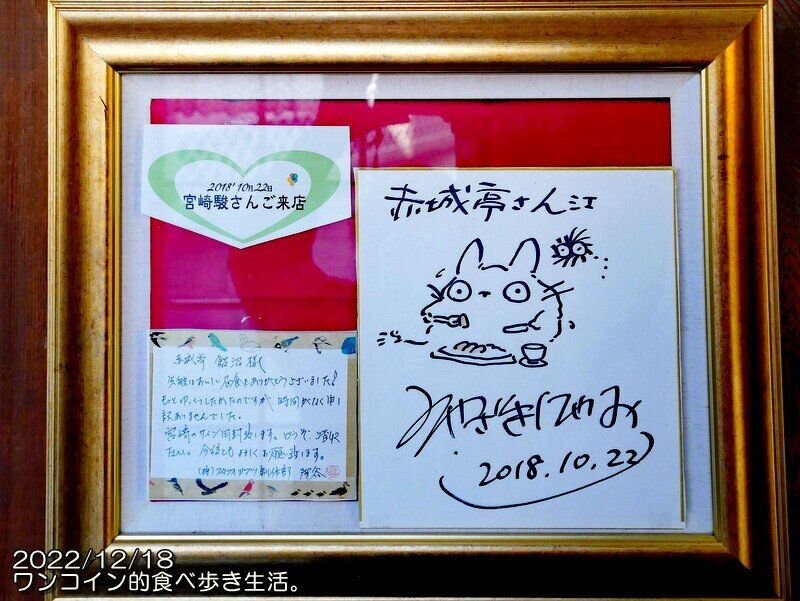 2018'10月22日
宮崎駿さんご来店
赤城亭さん江
みやざきはやお
2018.10.22
赤城亭 飯沼様
先般はおいしい昼食をありがとうございました!
もっとゆっくりしたかったのですが、時間がなく申し
訳ありませんでした。
宮崎のサイン同封致します。どうぞご査収
下さい。今後ともよろしくお願い致します。
(株)スタジオジブリ 制作部
2022/12/18
ワンコイン的食べ歩き生活。